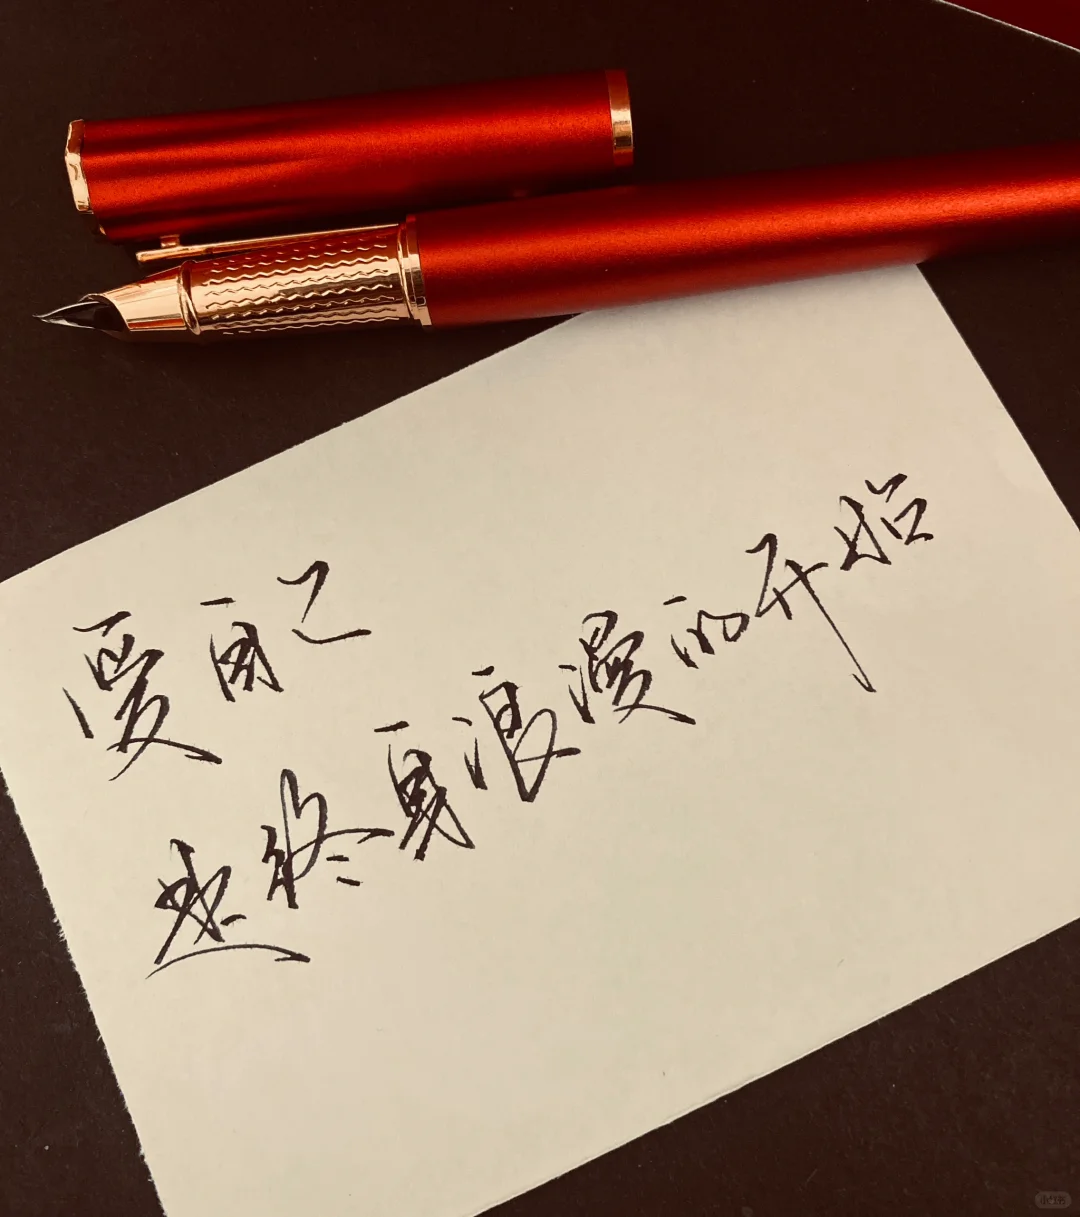 爱自己
是终身浪漫的开始
小红书